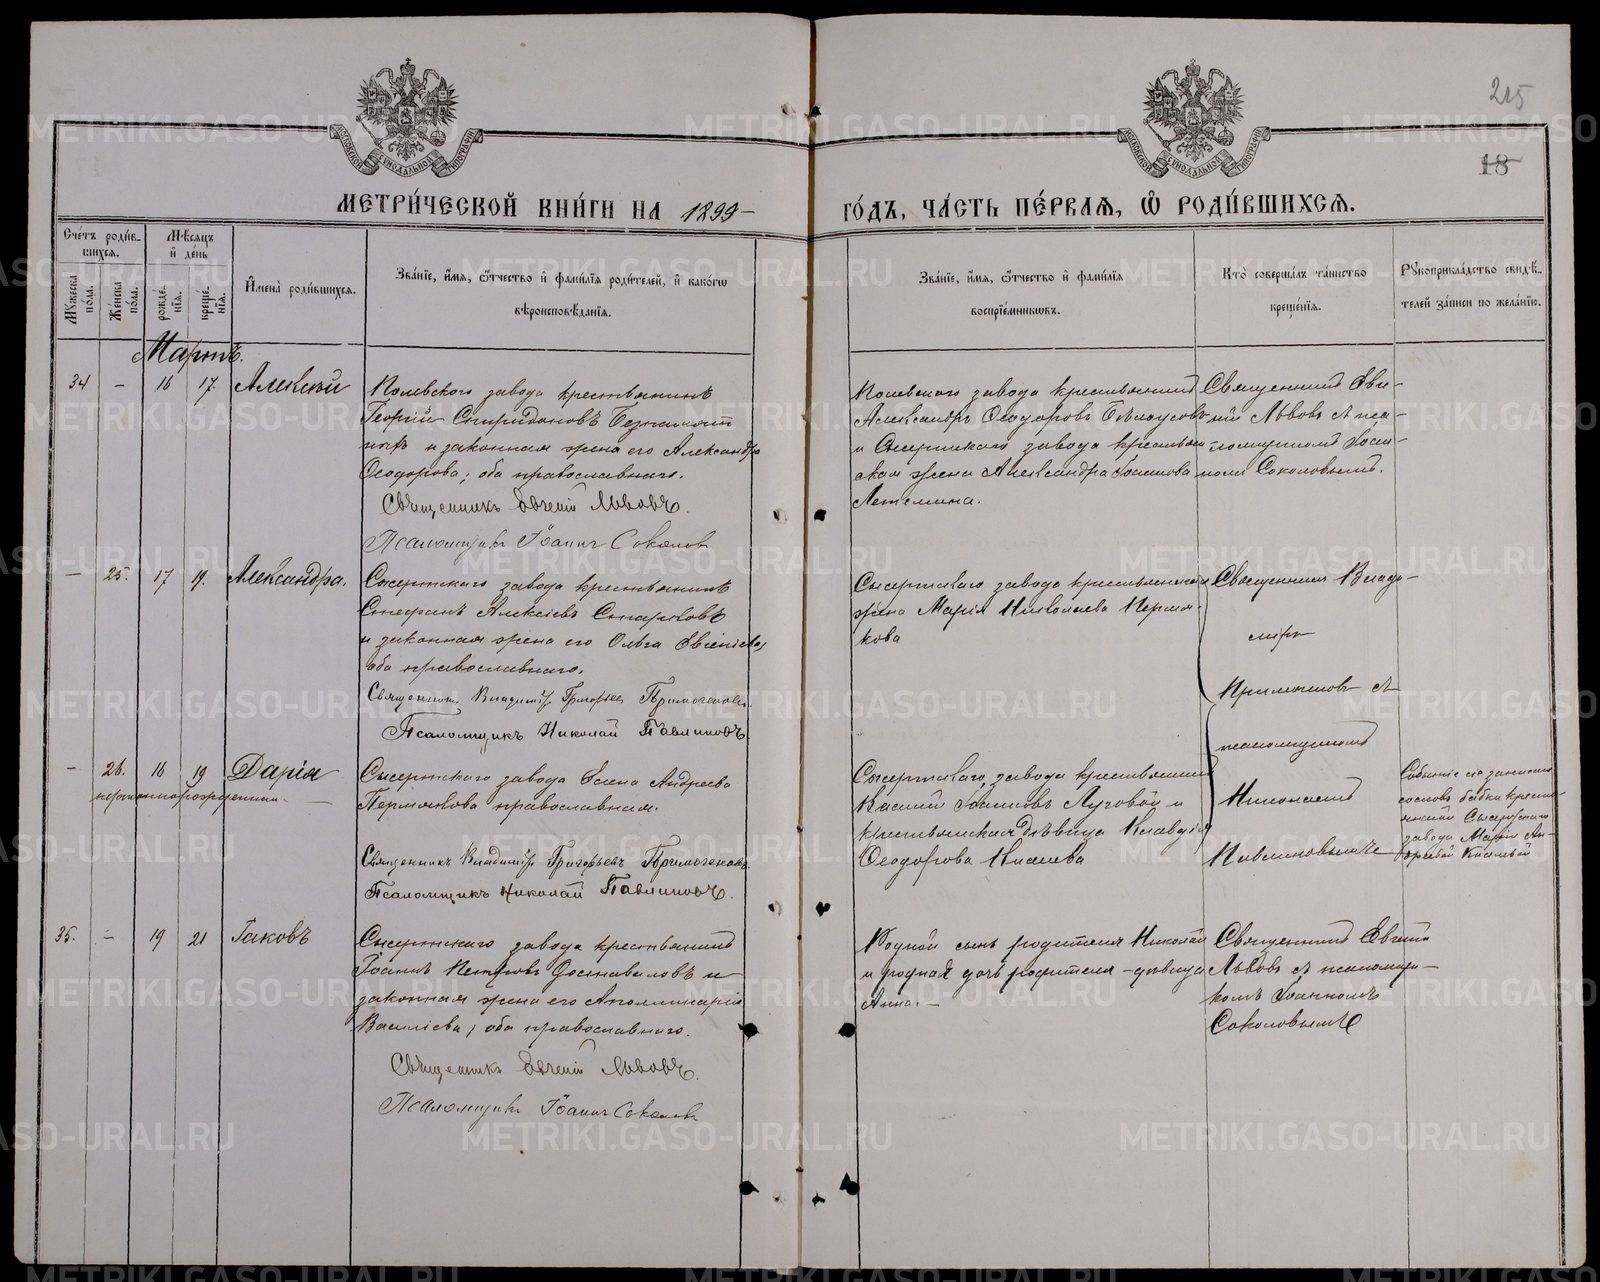 215
18
МОСКОВСКОЙ СѴНОДАЛЬНОЙ ТИПОГРАФІИ
МОСКОВСКОЙ СѴНОДАЛЬНОЙ ТИПОГРАФІИ
МЕТРИ́ЧЕСКОЙ КНИ́ГИ НА 1899
ГО́ДЪ, ЧА́СТЬ ПЕ́РВАѦ, Ѡ҆ РОДИ́ВШИХСѦ.
Сче́тъ роди́в-
шихсѧ.
Мꙋ́жеска по́ла.
Же́нска по́ла.
Мѣ́сѧцъ
и҆ де́нь
рожде́-нїѧ.
креще́-нїѧ.
И҆мена̀ роди́вшихсѧ.
Зва́нїе, и҆́мѧ, ѻ҆́тчество и҆ фами́лїѧ роди́телей, и҆ како́гѡ
вѣроисповѣ́данїѧ.
Зва́нїе, и҆́мѧ, ѻ҆́тчество и҆ фами́лїѧ
воспрїе́мникѡвъ.
Кто̀ соверша́лъ та́инство
креще́нїѧ.
Рꙋкоприкла́дство свидѣ́-
телей за́писи по жела́нїю.
Мартъ.
34 – 16 17. Алексѣй
Полевского завода крестьянинъ
Георгій Спиридоновъ
и законная жена его Александра
Ѳеодорова; оба православнаго.
Священникъ Евгеній Львовъ.
Псаломщикъ Іоаннъ Соколовъ
Полевского завода крестьянинъ
Александръ Ѳеодоровъ Бѣлоусовъ
и Сысертскаго завода крестьян-
ская жена Александра Іоаннова
Летемина.
Священникъ Евге-
ній Львовъ съ пса-
ломщикомъ Іоан-
номъ Соколовымъ.
– 25. 17 19. Александра.
Сысертскаго завода крестьянинъ
Стефанъ Алексѣевъ Стариковъ
и законная жена его Ольга Евгеніева,
оба православнаго.
Священникъ Владиміръ Григорьевъ
Псаломщикъ Николай Павлиновъ.
Сысертскаго завода крестьянская
жена Марія Николаева Пермя-
кова
Священникъ Влади-
міръ
съ
псаломщикомъ
Николаемъ
Павлиновымъ
– 26. 16 19 Дарія
незаконнорожденная
Сысертскаго завода Елена Андреева
Пермякова православная.
Священникъ Владиміръ Григорьевъ
Псаломщикъ Николай Павлиновъ.
Сысертскаго завода крестьянинъ
Василій Іоанновъ Луговой и
крестьянская дѣвица Клавдія
Ѳеодорова Кислева
Событіе сіе записано
со словъ бабки кресть-
янки Сысертскаго
завода Маріи Ан-
35. – 19 21 Іаковъ
Сысертскаго завода крестьянинъ
Іоаннъ Петровъ Достоваловъ и
законная жена его Аполлинарія
Василіева, оба православнаго.
Священникъ Евгеній Львовъ.
Псаломщикъ Іоаннъ Соколовъ
Родной сынъ родителя Николай
и родная дочь родителя – дѣвица
Анна. –
Священникъ Евгеній
Львовъ съ псаломщи-
комъ Іоанномъ
Соколовымъ
METRIKI.GASO-URAL.RU